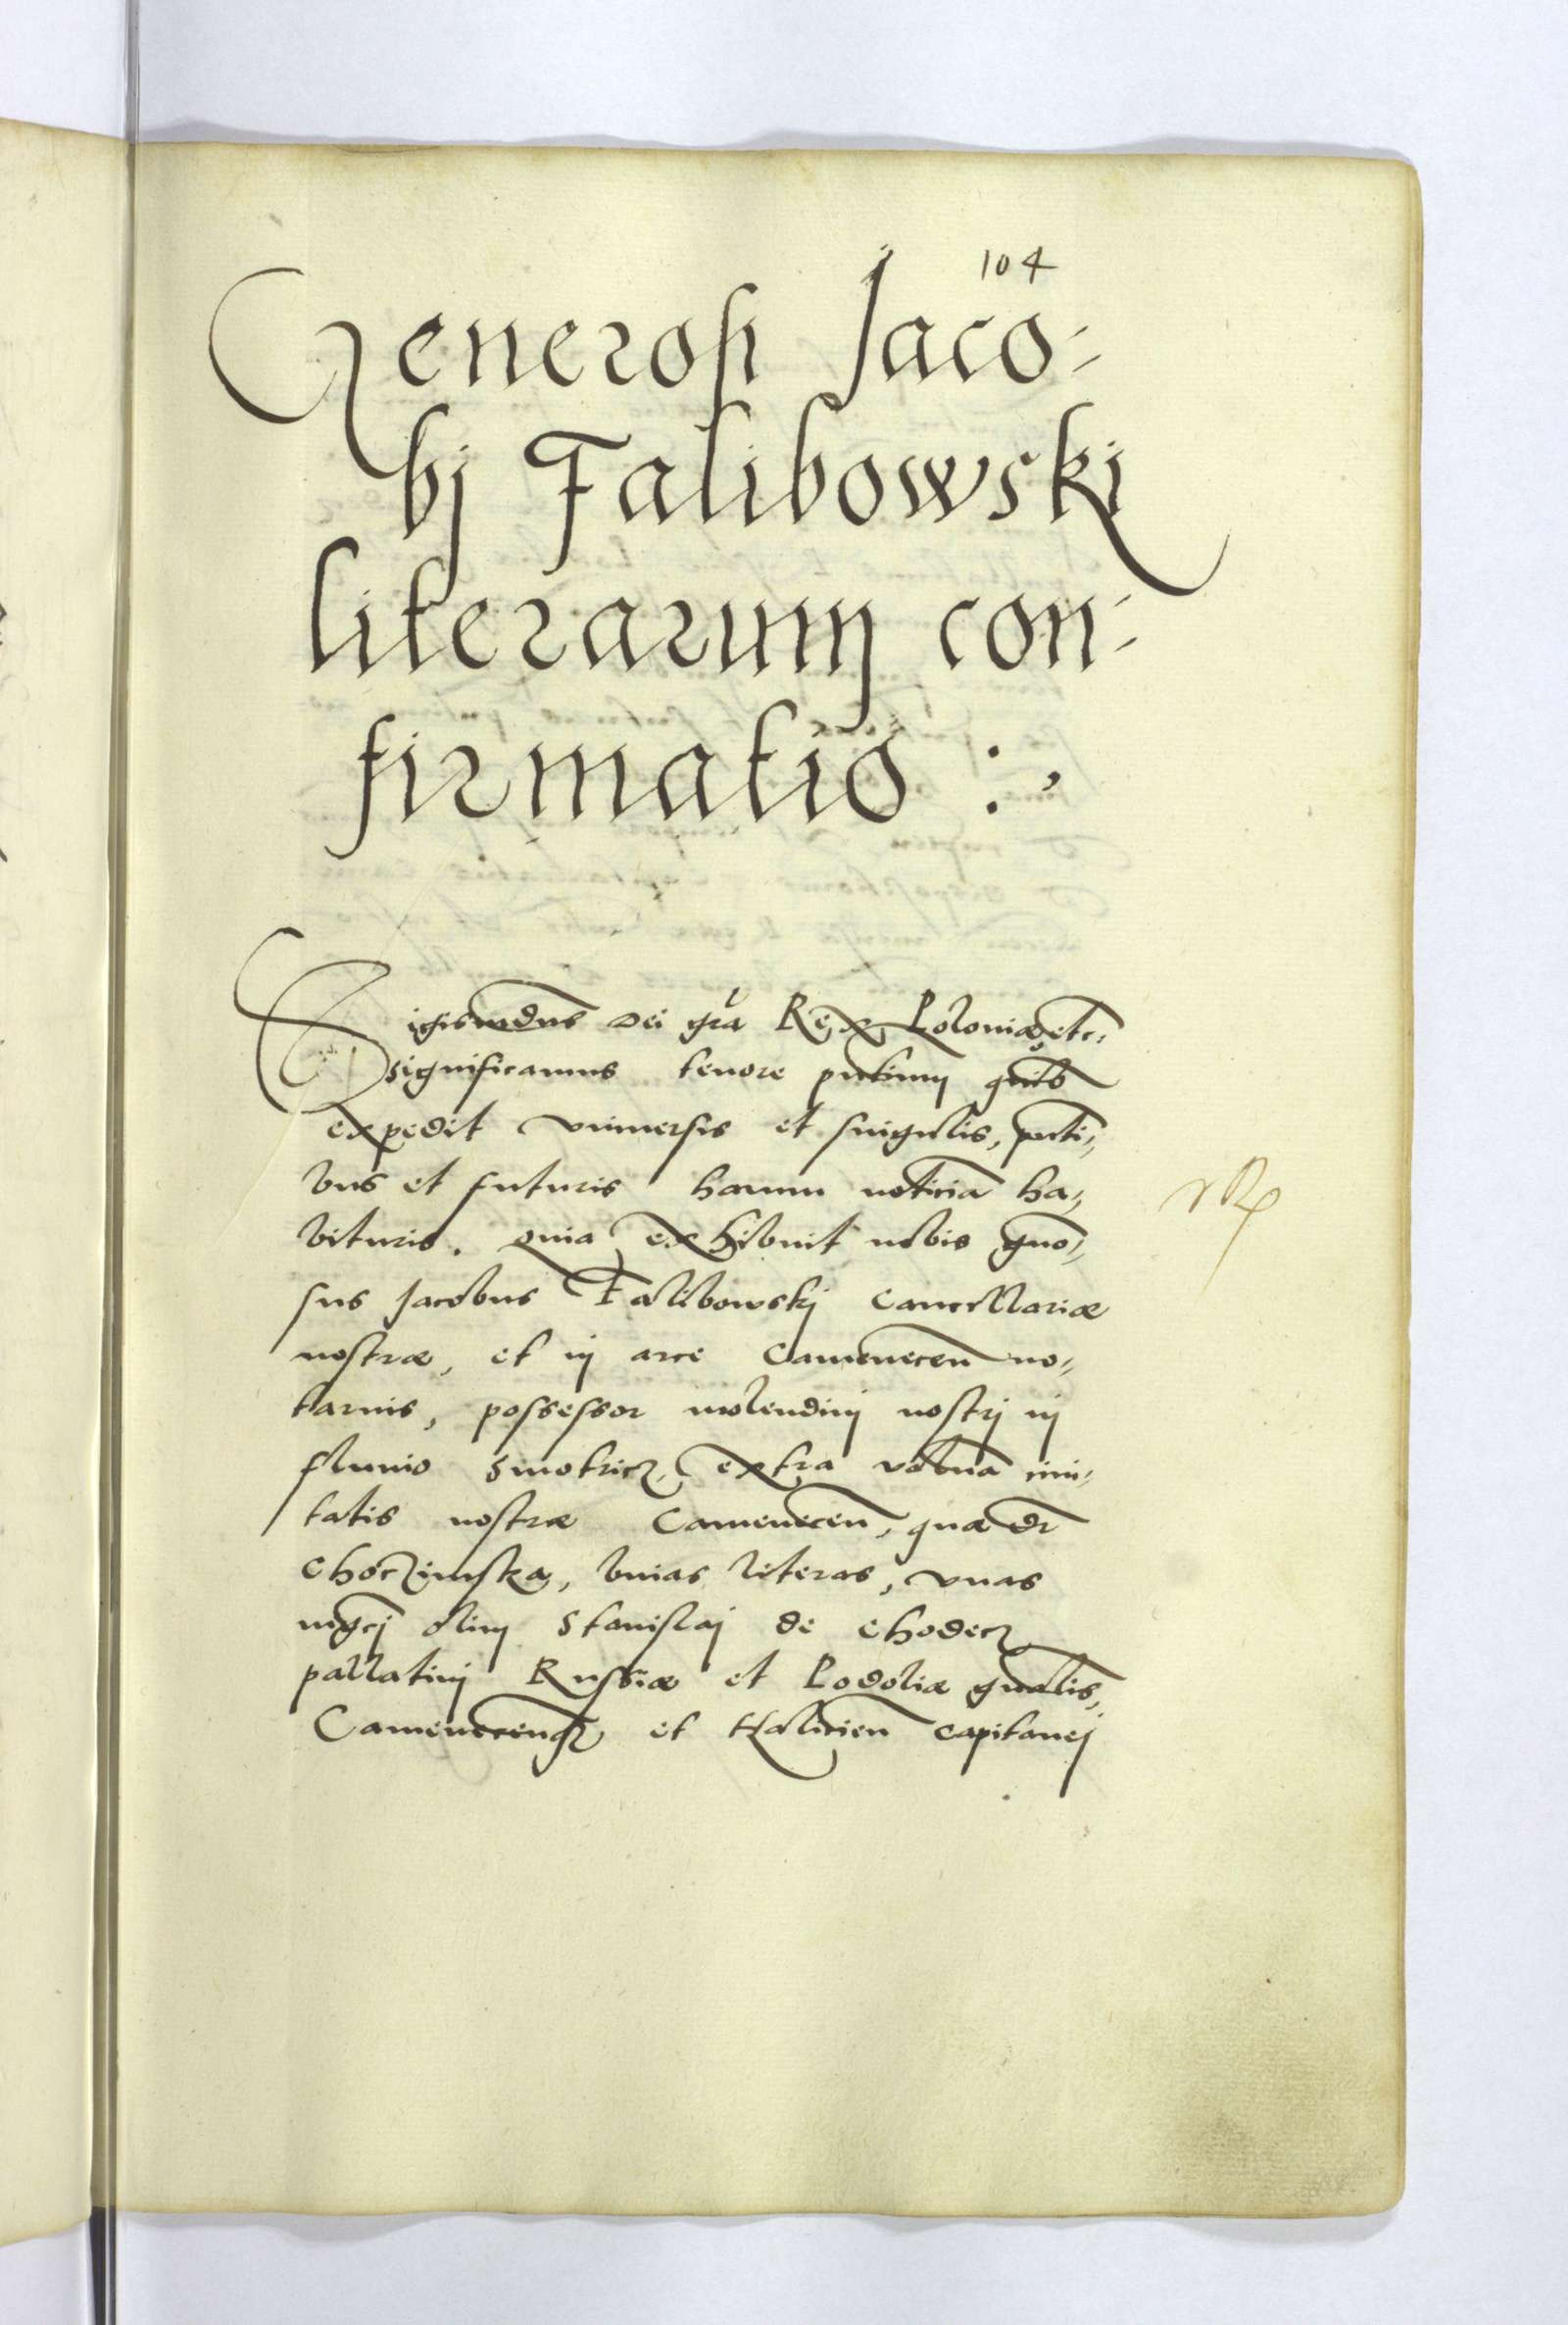 104
Generosi Jaco-
bj Falibowski
literarum con-
firmatio :,
Sigismūdus Dei gr̄a Rex Poloniæ etc.
significamus tenore p̄ntium quib̄
expedit vniuersis et singulis, pn̄ti-
bus et futuris harum noticiā ha-
bituris. quia exhibuit nobis gn̄o-
sus Jacobus Falibowskj Cancellariæ
nostræ, et in arce Camenecen̄ no-
tarius, possessor molendini nostrj in
fluuio Smotricz, extra valuā ciui-
tatis nostræ Camenecen̄, quæ dr̄
Choczimska, binas literas, vnas
mgc̄j olim Stanislaj de Chodecz
pallatinj Russiæ et Podoliæ gn̄alis,
Camenecenqz et Halicien̄ capitanej